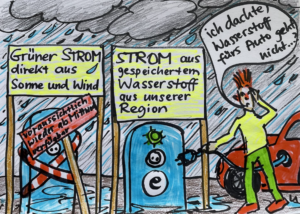 Grüner STROM
direkt aus
Sonne und Wind
STROM aus
gespeichertem
Wasserstoff
aus unserer
Region
ich dachte
Wasserstoff
fürs Auto geht
nicht...?
voraussichtlich
wieder ab Mittwoch
e